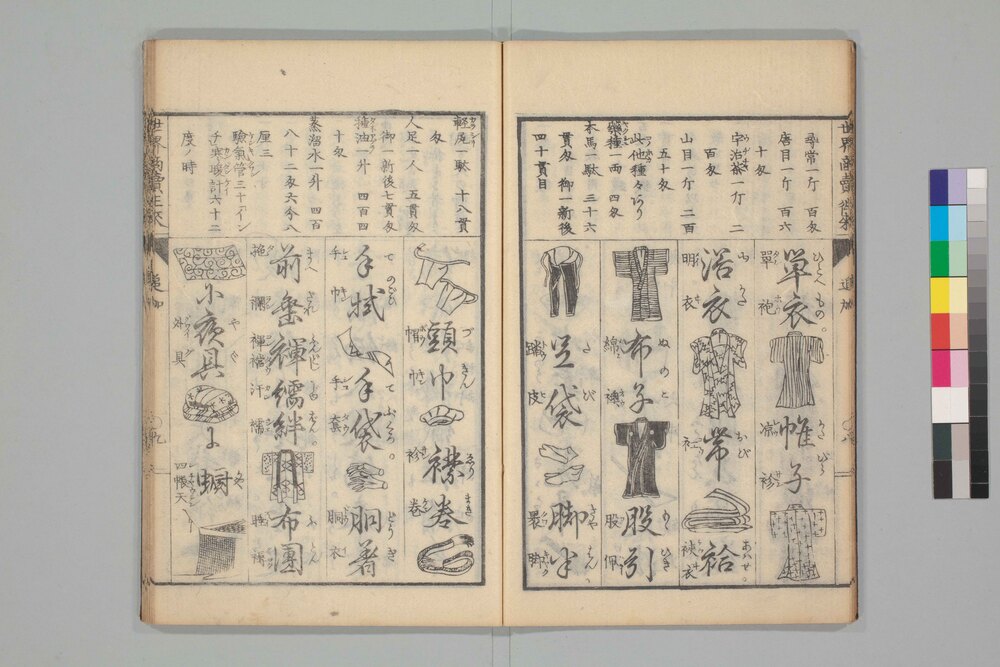 尋常一斤 百匁
唐目一斤 百六
十匁
宇治茶一斤 二
百匁
山目一斤 二百
五十匁
此他種々あり
一両 四匁
本馬一駄 三十六
貫匁 御一新後
四十貫目
單衣 ひとへもの。
單袍
帷子 かたびら
浴衣 ゆかた
明衣
帯 おび
袷 あハせ。
裌衣
布子 ぬのこ
綿
股引 もゝひき
股佩
足袋 たび
踏皮
脚半 きやはん。
軽尻一駄 十八貫
匁
人足一人 五貫匁
御一新後七貫匁
種油一升 四百四
十匁
蒸溜水一升 四百
八十二匁六分八
厘三
験氣管三十イン
チ寒暖計六十二
度ノ時
頭巾 づきん
帽巾
襟巻 ゑりまき
衫巻
手拭 てのごひ
手帕
手袋 てぶくろ。
手套
胴着 どうぎ
胴衣
前垂 まへだれ
襌繻絆
汗襦
布團 ふとん
小夜具 やぐ
外具
蚊帳
四帳天
世界商賣往来
追加